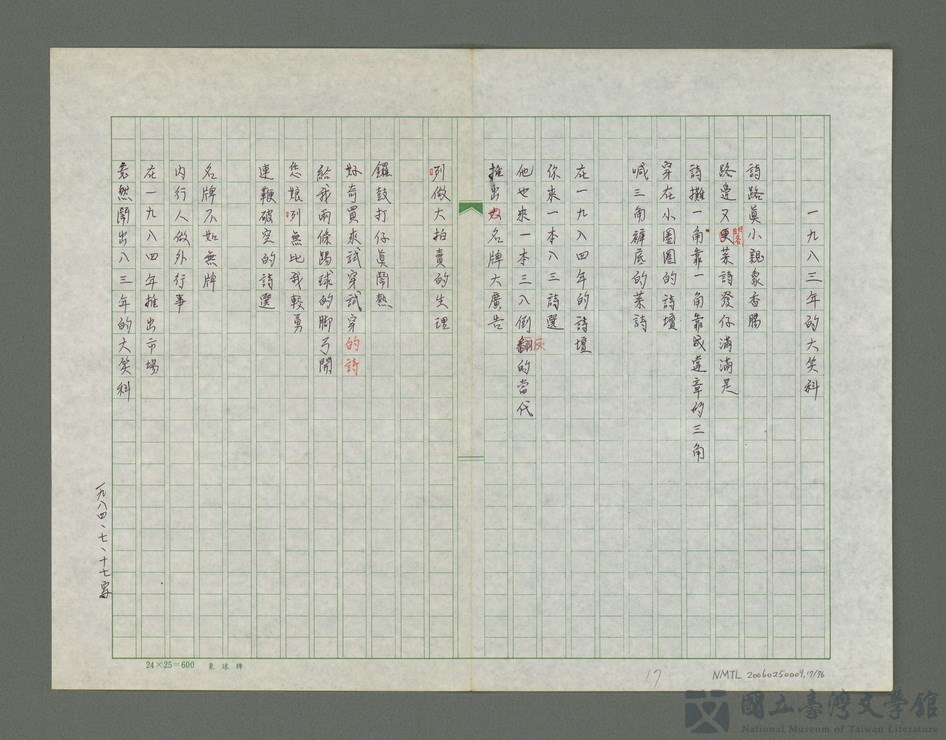 一九八三年的大笑科
詩路真小親象香腸
路邊又更菜詩發仔滿滿是
詩攤一角靠一角靠成違章的三角
穿在小圈圈的詩壇
喊三角褲底的菜詩
在一九八四年的詩壇
你來一本八三詩選
他也來一本三八倒翻的當代
推出名牌大廣告
咧做大拍賣的生理
鑼鼓打仔真鬧熱
好奇買來試穿試穿的詩
給我兩條踢球的脚弓開
您娘咧無比我較勇
連鞭破空的詩選
名牌不如無牌
內行人做外行事
在一九八四年推出市場
竟然鬧出八三年的大笑科
一九八四、七、十七寫
24×25=600
17
NMTL 20060250004.17/76
國立臺灣文學館
National Museum of Taiwan Literature